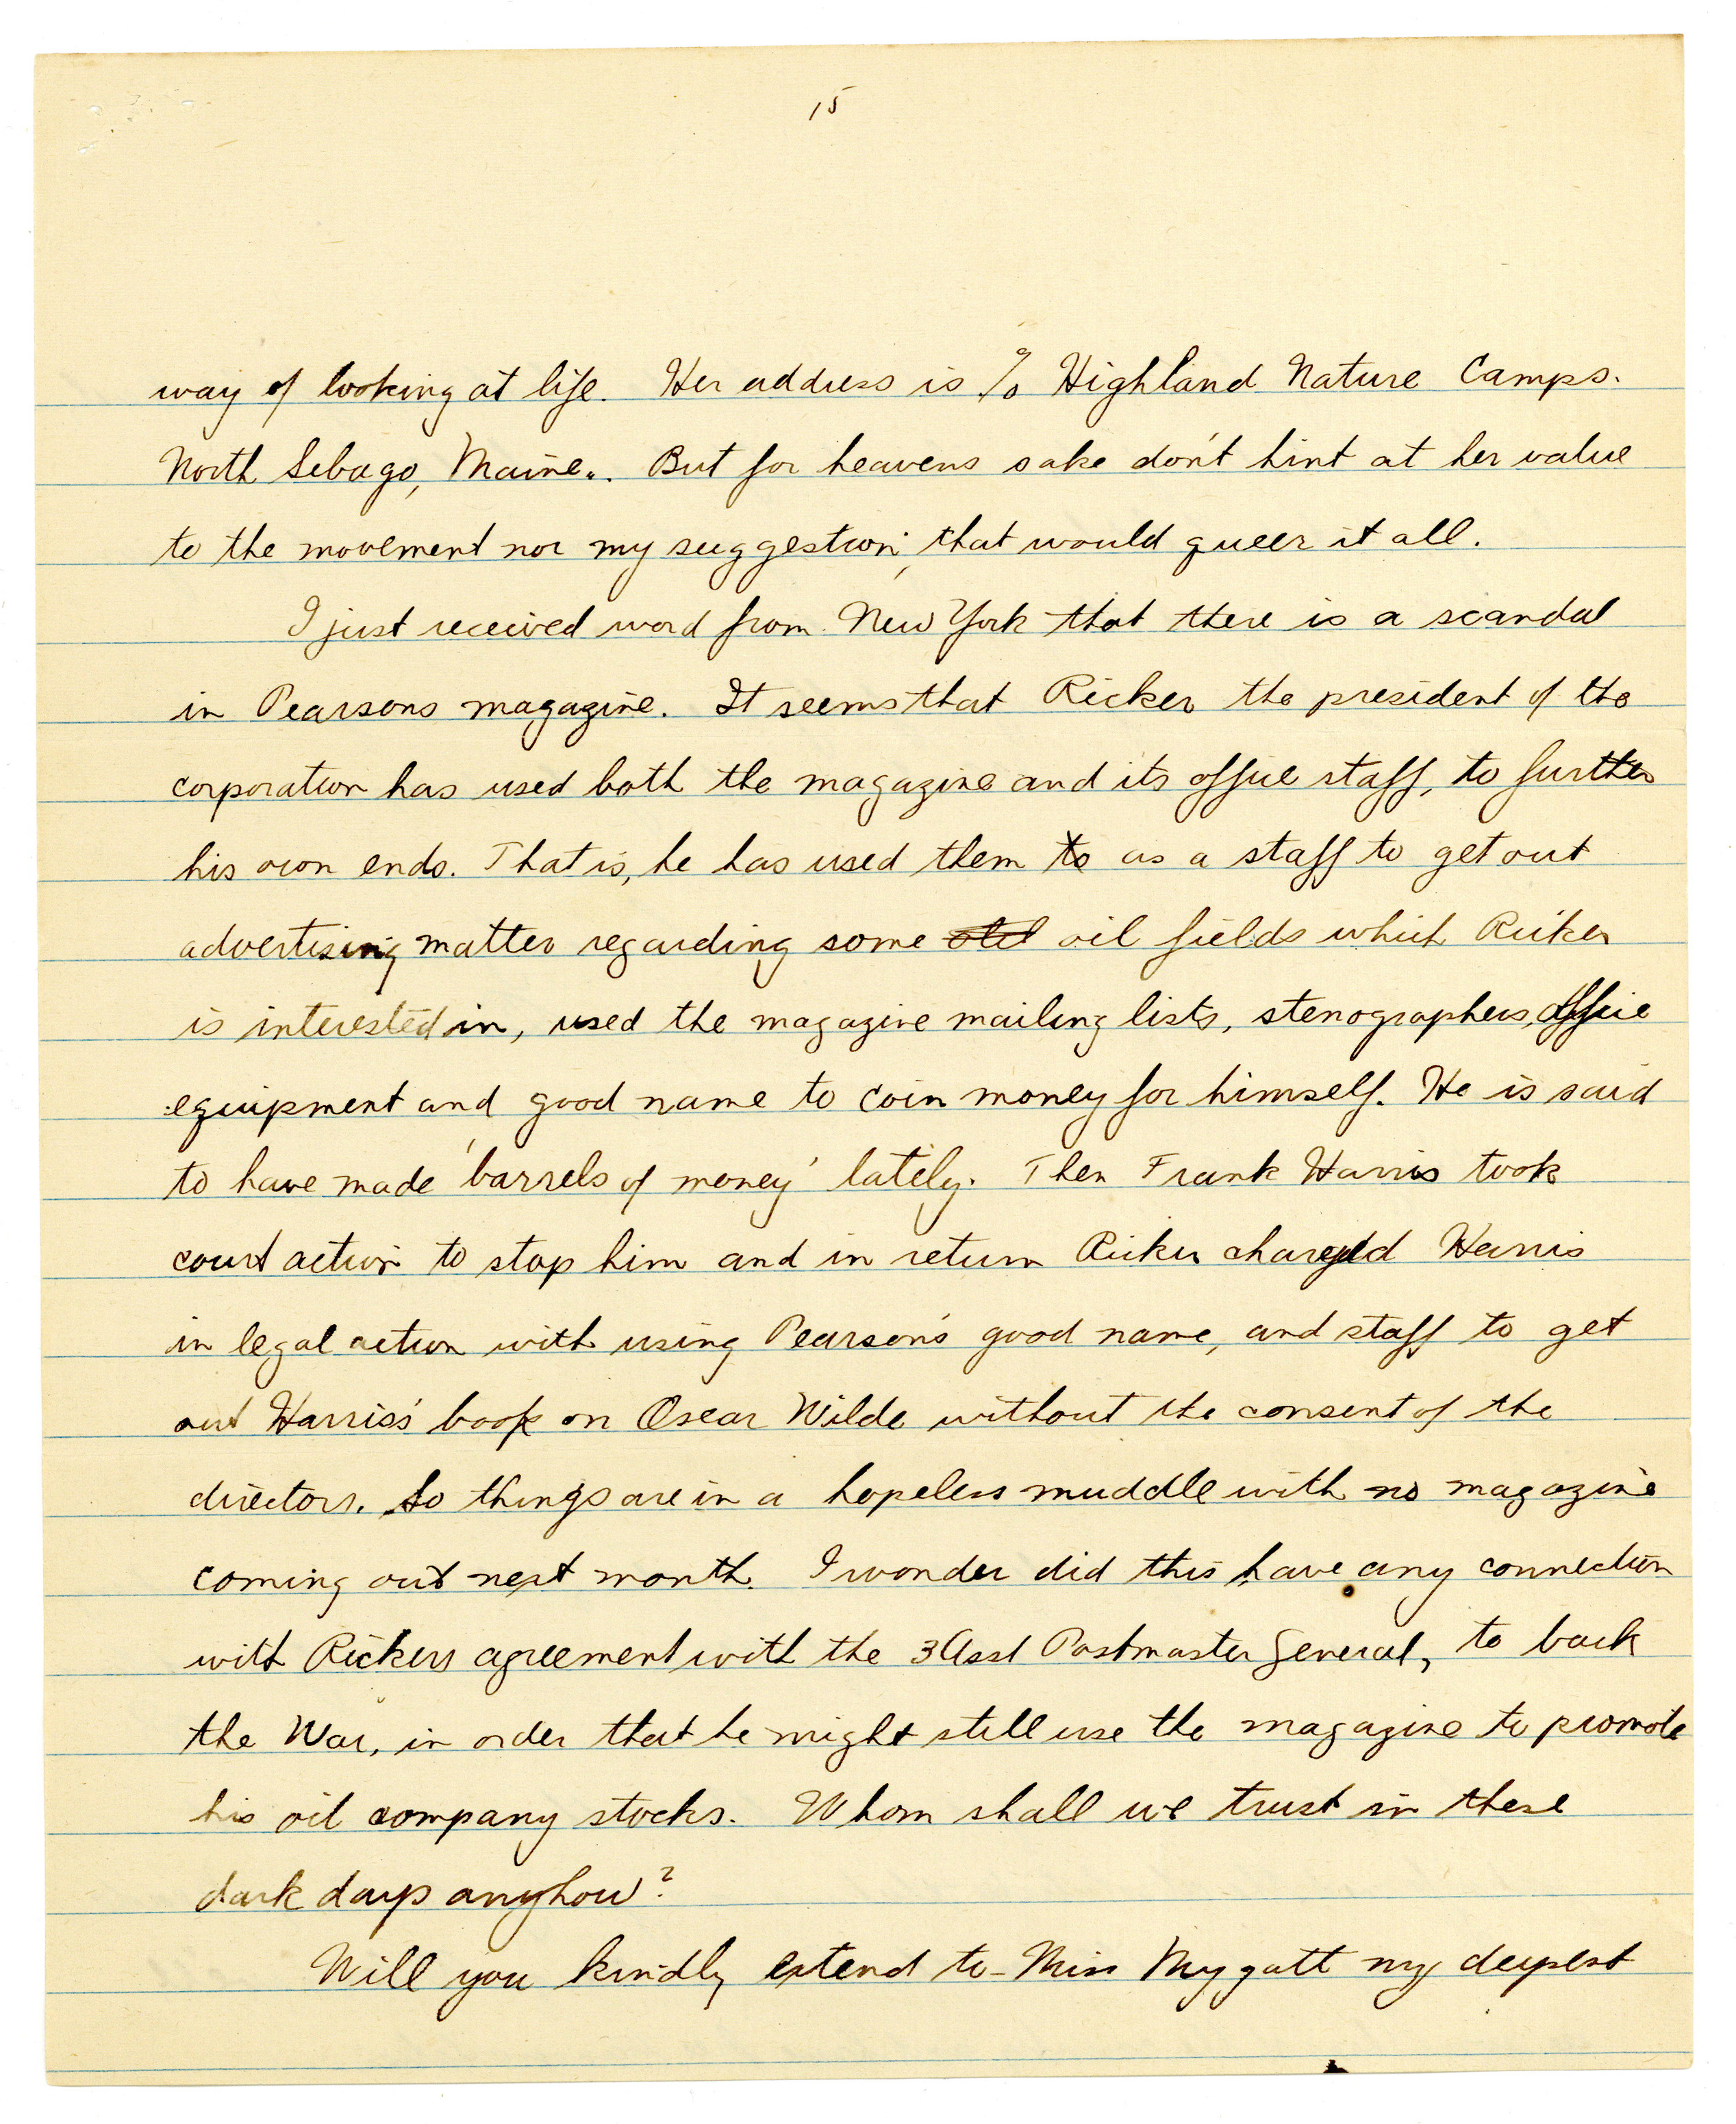 15
way of looking at life. Her address is c/o Highland Nature Camps.
North Sebago, Maine.. But for heavens sake don't hint at her value
to the movement nor my suggestion, that would queer it all.
I just received word from New York that there is a scandal
in Pearsons magazine. It seems that Ricker the president of the
corporation has used both the magazine and its office staff, to further
his own ends. That is, he has used them to as a staff to get out
advertising matter regarding some oil fields which Ricker
is interested in, used the magazine mailing lists, stenographers, office
equipment and good name to coin money for himself. He is said
to have made 'barrels of money' lately. Then Frank Harris took
court action to stop him and in return Ricker charged Harris
in legal action with using Pearson's good name, and staff to get
out Harris's book on Oscar Wilde without the consent of the
directors. So things are in a hopeless muddle with no magazine
coming out next month. I wonder did this have any connection
with Rickers agreement with the 3 Asst Postmaster General, to back
the War, in order that he might still use the magazine to promote
his oil company stocks. Whom shall we trust in these
dark days anyhow?
Will you kindly extend to Miss Mygatt my deepest